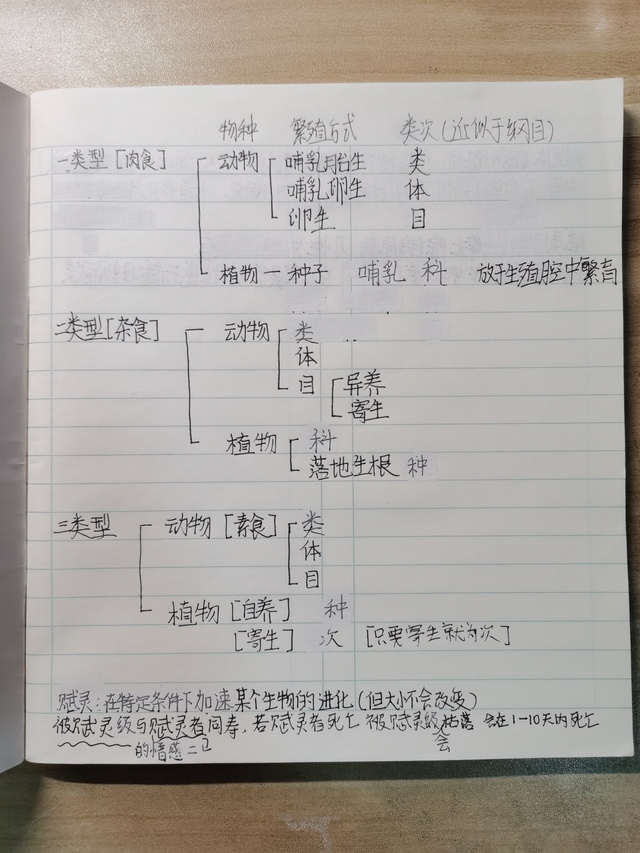 物种 繁殖方式 类次(近似于纲目)
一类型[肉食] 动物 哺乳胎生 类
哺乳卵生 体
卵生 目
植物 种子 哺乳 科 放于生殖腔中繁育
二类型[杂食] 动物 类
体
目 异养
寄生
植物 科
落地生根 种
三类型 动物 [素食] 类
体
目
植物 [自养] 种
[寄生] 次 [只要寄生就为次]
赋灵:在特定条件下加速某个生物的进化(但大小不会改变)
被赋灵须与赋灵者同寿,若赋灵者死亡 被赋灵 会在1-10天内死亡
的情感 会